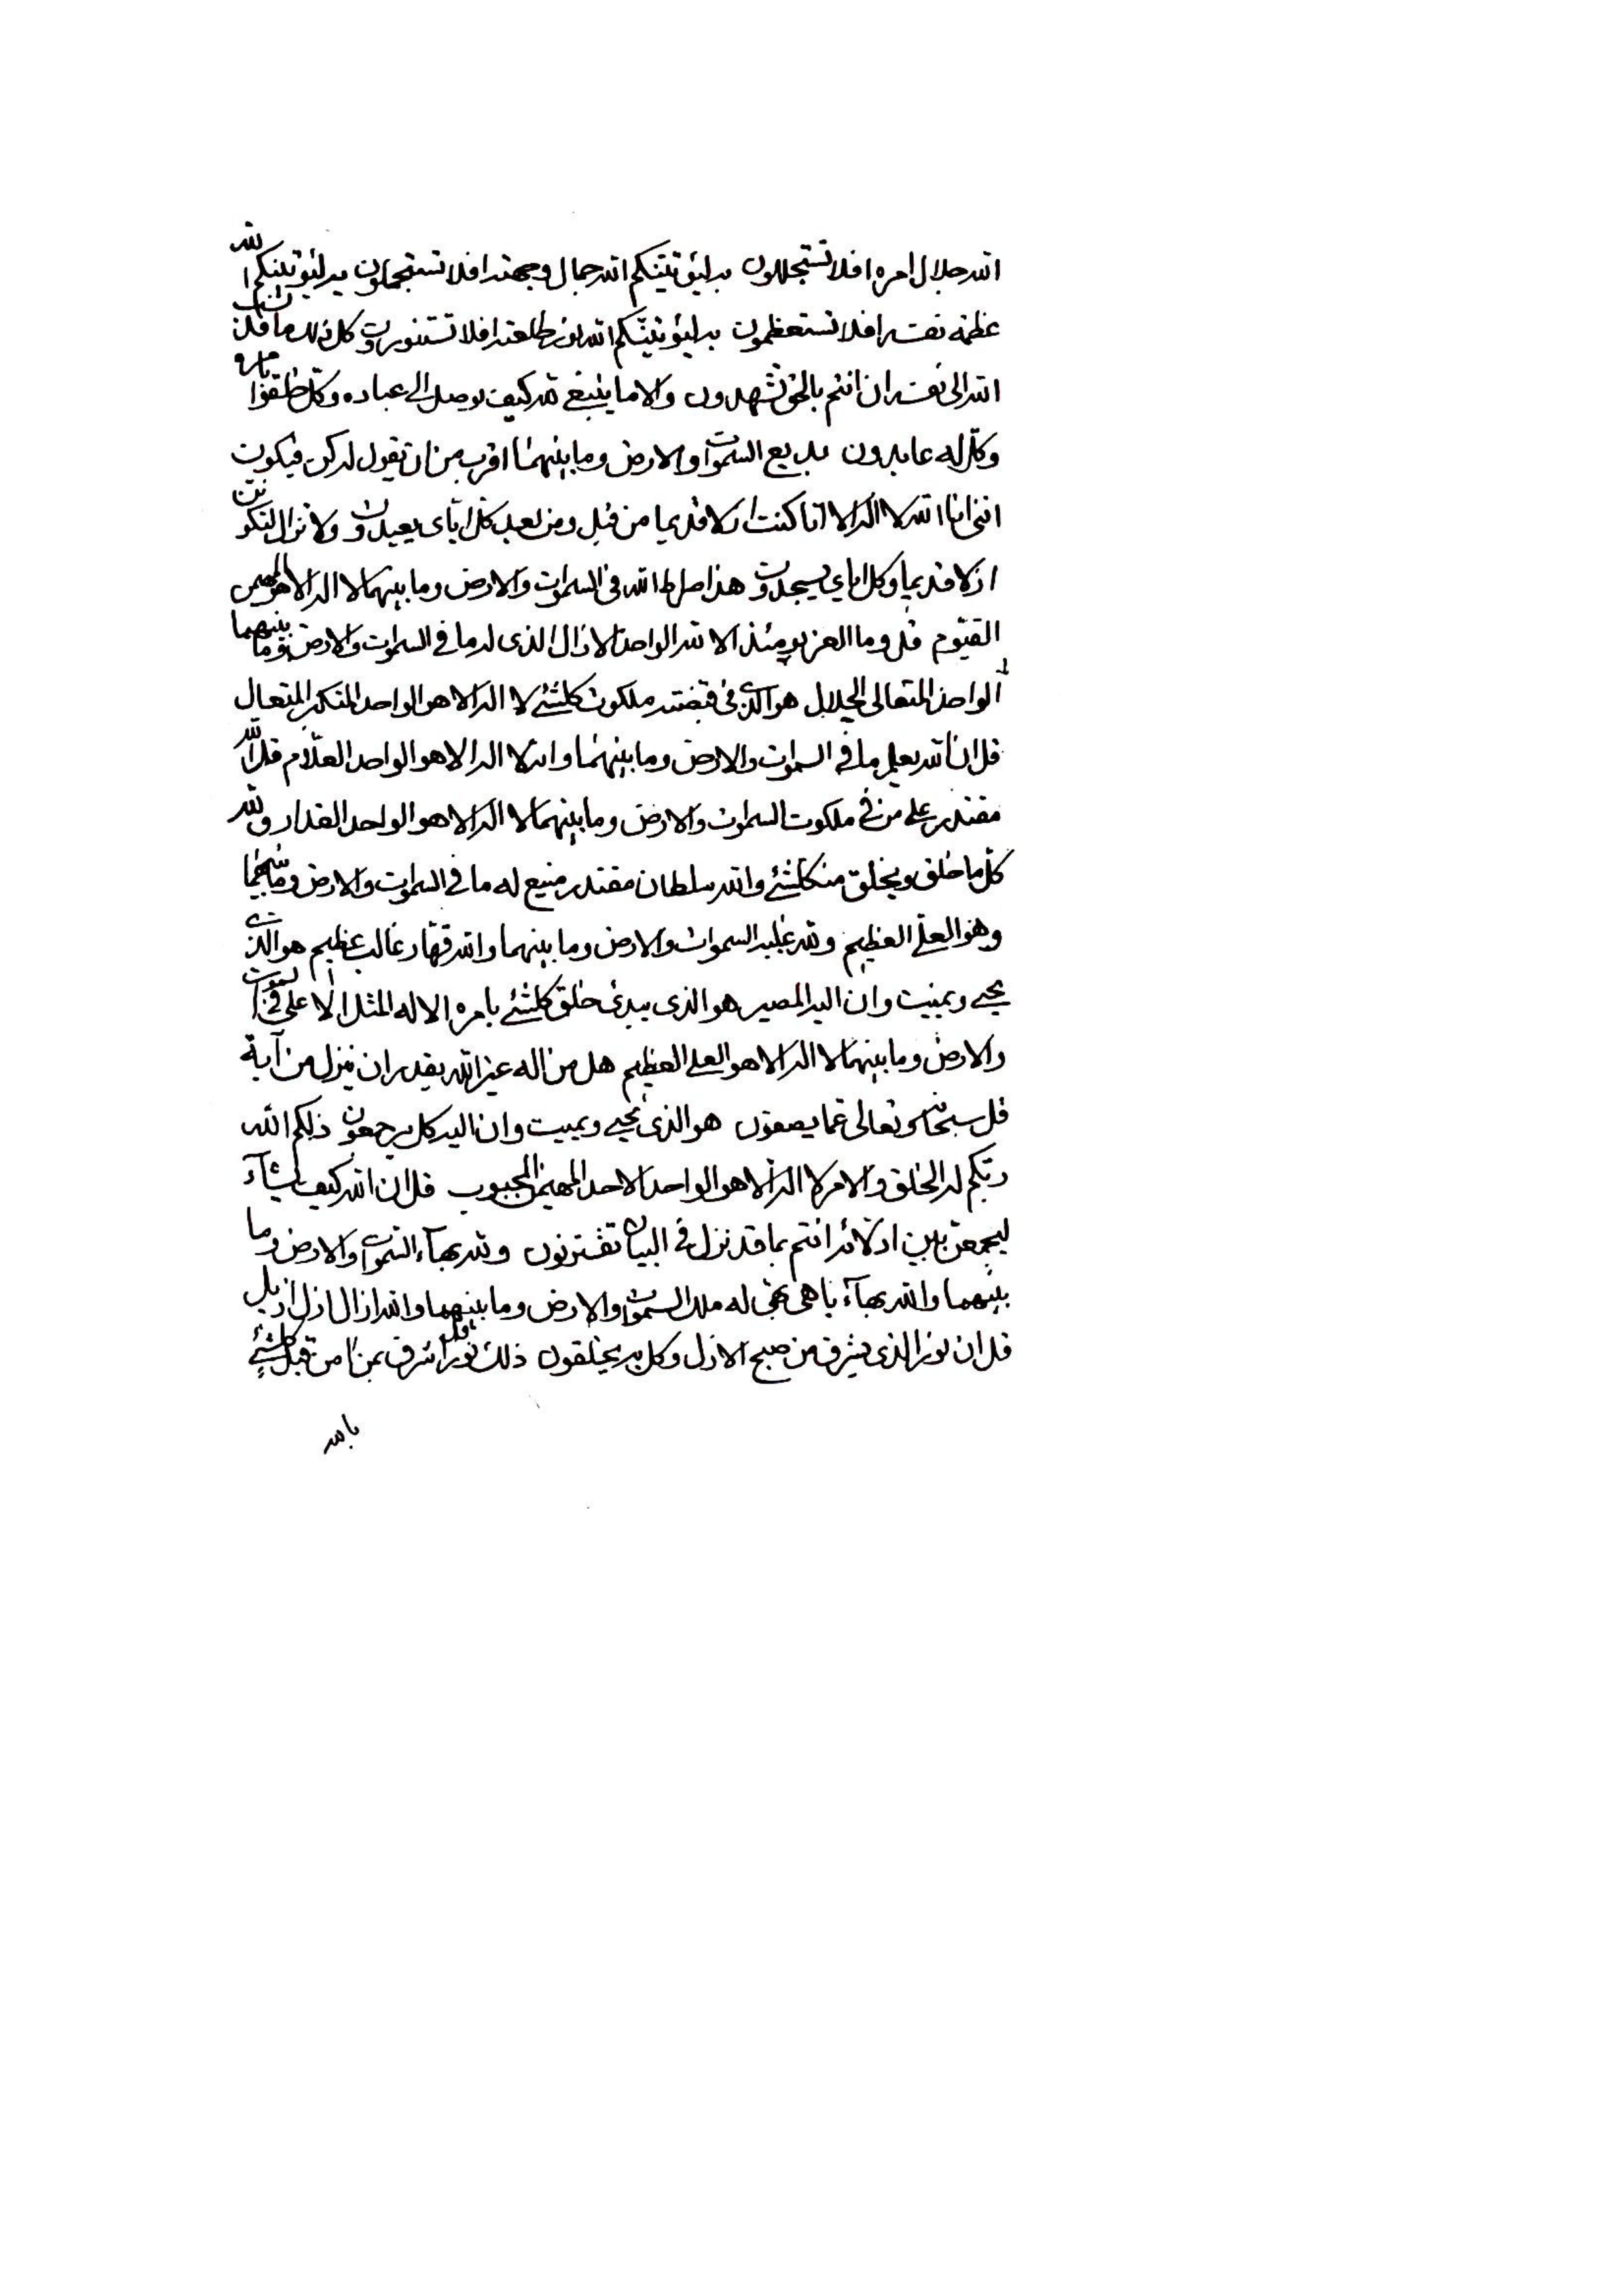 الله جلال امره افلا تستجللون به ليؤتينكم الله جمال وجهه افلا تستجملون به ليؤتينكم الله
عظمة نفسه افلا تستعظمون به ليؤتينكم الله نور طلعته افلا تستنورون وكل ذلك ما قد نسب
الله الى نفسه ان انتم بالحق تشهدون والا ما ينبغي لله كيف يوصل الى عباده وكل خلقوا بامره
وكل له عابدون بديع السموات والارض وما بينهما اقرب من ان تقول له كن فيكون
انني انا الله لا اله الا انا كنت ازلا قديما من قبل ومن بعد كل اياي يعبدون ولا نزال لنكونن
ازلا قديما وكل اياي يسجدون هذا صراط الله في السموات والارض وما بينهما لا اله الا هو المهيمن
القيوم قل وما العز يومئذ الا لله الواحد الازال الذى له ما في السموات والارض وما بينهما
الواحد المتعالى الجلال هو الذي في قبضته ملكوت كلشئ لا اله الا هو الواحد المتكبر المتعال
قل ان الله يعلم ما في السموات والارض وما بينهما وانه لا اله الا هو الواحد العلام قل الله
مقتدر على من في ملكوت السموات والارض وما بينهما لا اله الا هو الواحد القدار ولله
كل ما خلق ويخلق من كلشئ والله سلطان مقتدر منيع له ما في السموات والارض وما بينهما
وهو العلي العظيم ولله غلبة السموات والارض وما بينهما والله قهار غالب عظيم هو الذي
يحيي ويميت وان اليه المصير هو الذى يبدئ خلق كلشئ بامره الا له المثل الاعلى في السموات
والارض وما بينهما لا اله الا هو العلي العظيم هل من اله غير الله يقدر ان ينزل من آية
قل سبحانه وتعالى عما يصفون هو الذى يحيي ويميت وان اليه كل يرجعون ذلكم الله
ربكم له الخلق والامر لا اله الا هو الواحد الاحد المهيمن المحبوب قل ان الله كيف يشآء
ليجمعن بين ادلائه انتم بما قد نزل في البيان تقترنون ولله بهآء السموات والارض وما
بينهما والله بهآء باهى بهي له ملك السموات والارض وما بينهما والله ازال ازل ازيل
قل ان نور الذى يشرق من صبح الازل وكل به يخلقون ذلك نور اول اشرق بمن امن قبل كلشئ
بالله